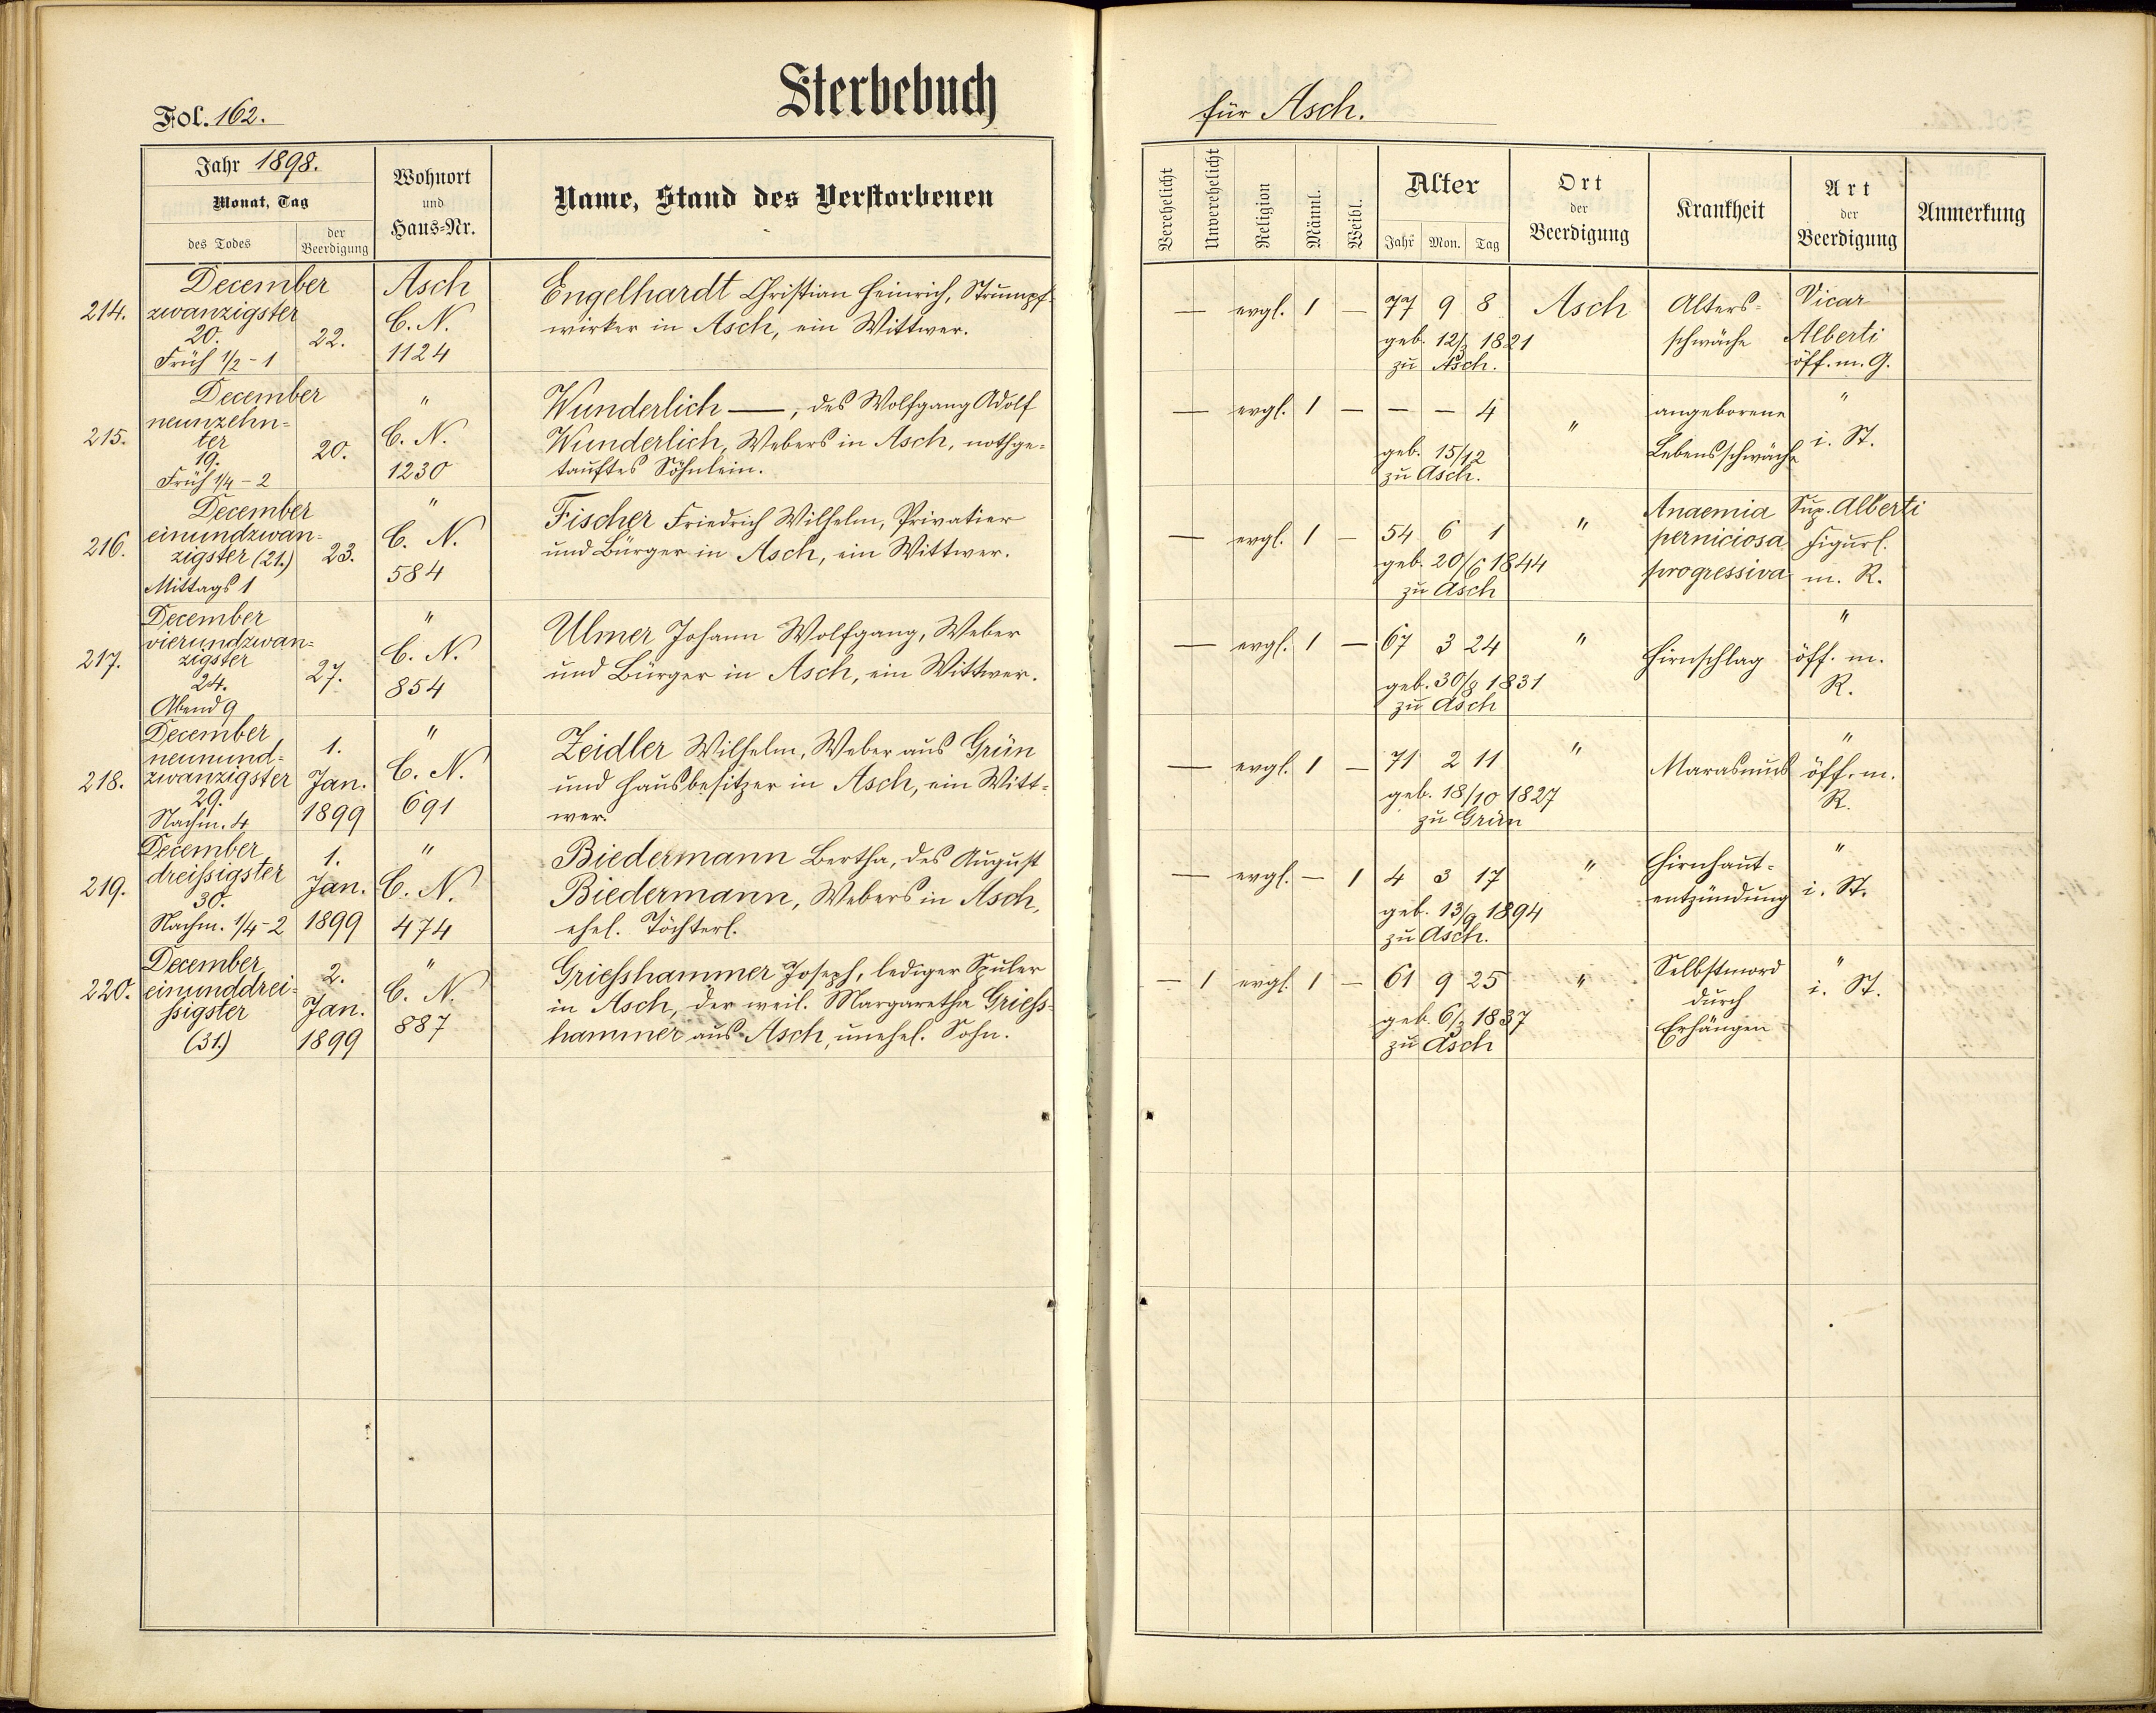 Fol. 162.
Sterbebuch
Jahr 1898.
Monat, Tag
des Todes
der Beerdigung
Wohnort
und
Haus=Nr.
Name, Stand des Verstorbenen
214.
December
zwanzigster
20.
Früh 1/2 - 1
22.
Asch
C. N.
1124
Engelhardt Christian Heinrich, Strumpf-
wirker in Asch, ein Wittwer.
215.
December
neunzehn=
ter
19.
Früh 1/4 - 2
20.
"
C. N.
1230
Wunderlich —, des Wolfgang Adolf
Wunderlich, Webers in Asch, nothge=
tauftes Söhnlein.
216.
December
einundzwan=
zigster (21.)
Mittags 1
23.
"
C. N.
584
Fischer Friedrich Wilhelm, Privatier
und Bürger in Asch, ein Wittwer.
217.
December
vierundzwan=
zigster
24.
Abend 9
27.
"
C. N.
854
Ulmer Johann Wolfgang, Weber
und Bürger in Asch, ein Wittwer.
218.
December
neunund=
zwanzigster
29.
Nachm. 4
1.
Jan.
1899
"
C. N.
691
Zeidler Wilhelm, Weber aus Grün
und Hausbesitzer in Asch, ein Witt=
wer.
219.
December
dreissigster
30.
Nachm. 1/4 - 2
1.
Jan.
1899
"
C. N.
474
Biedermann Bertha, des August
Biedermann, Webers in Asch,
ehel. Töchterl.
220.
December
einunddrei=
ssigster
(31.)
2.
Jan.
1899
"
C. N.
887
Griesshammer Joseph, lediger Spuler
in Asch, der weil. Margaretha Griess=
hammer aus Asch, unehel. Sohn.
für Asch.
Verehelicht
Unverehelicht
Religion
Männl.
Weibl.
Alter
Jahr Mon. Tag
Ort
der
Beerdigung
Krankheit
Art
der
Beerdigung
Anmerkung
— evgl. 1 — 77 9 8
geb. 12/3 1821
zu Asch.
Asch
Alters=
schwäche
Vicar
Alberti
öff. m. G.
— evgl. 1 — — — 4
geb. 15/12
zu Asch.
"
angeborene
Lebensschwäche
"
i. St.
— evgl. 1 — 54 6 1
geb. 20/6 1844
zu Asch
"
Anaemia
perniciosa
progressiva
Sup. Alberti
Figurl.
m. R.
— evgl. 1 — 67 3 24
geb. 30/8 1831
zu Asch
"
Hirnschlag
"
öff. m.
R.
— evgl. 1 — 71 2 11
geb. 18/10 1827
zu Grün
"
Marasmus
"
öff. m.
R.
— evgl. — 1 4 3 17
geb. 13/9 1894
zu Asch.
"
Hirnhaut=
entzündung
"
i. St.
— 1 evgl. 1 — 61 9 25
geb. 6/3 1837
zu Asch
"
Selbstmord
durch
Erhängen
"
i. St.